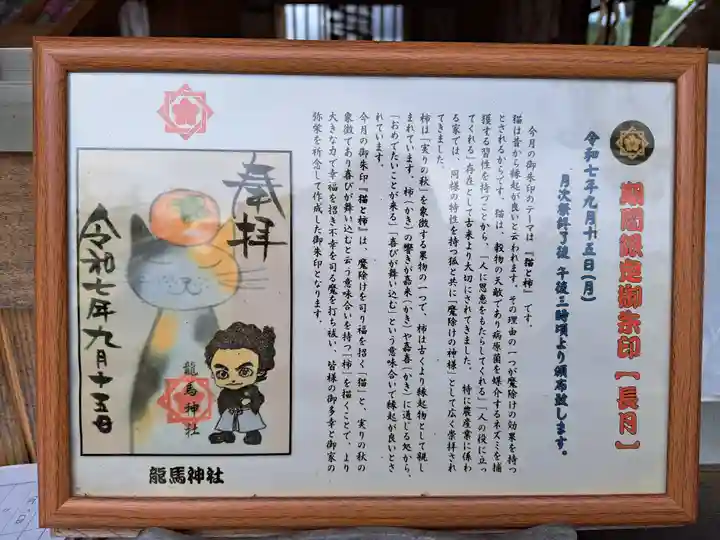 期間限定御朱印【長月】
令和七年九月十五日(月)
月次祭終了後 午後三時頃より頒布致します。
今月の御朱印のテーマは『猫と柿』です。
猫は昔から縁起が良いと云われます。その理由の一つが魔除けの効果を持つ
とされるからです。猫は、穀物の天敵であり病原菌を媒介するネズミを捕
獲する習性を持つことから、「人に恩恵をもたらしてくれる」「人の役に立っ
てくれる」存在として古来より大切にされてきました。特に農産業に係わ
る家では、同様の特性を持つ狐と共に「魔除けの神様」として広く崇拝され
てきました。
柿は「実りの秋」を象徴する果物の一つで、柿は古くより縁起物として親し
まれています。柿(かき)の響きが嘉来(かき)や嘉喜(かき)に通じる処から、
「おめでたいことが来る」「喜びが舞い込む」という意味合いで縁起が良いとさ
れています。
今月の御朱印『猫と柿』は、魔除けを司り福を招く「猫」と、実りの秋の
象徴であり喜びが舞い込むと云う意味合いを持つ「柿」を描くことで、より
大きな力で幸福を招き不幸を司る魔を打ち祓い、皆様の御多幸と御家の
弥栄を祈念して作成した御朱印となります。
奉拝
龍馬神社
令和七年九月十五日
龍馬神社